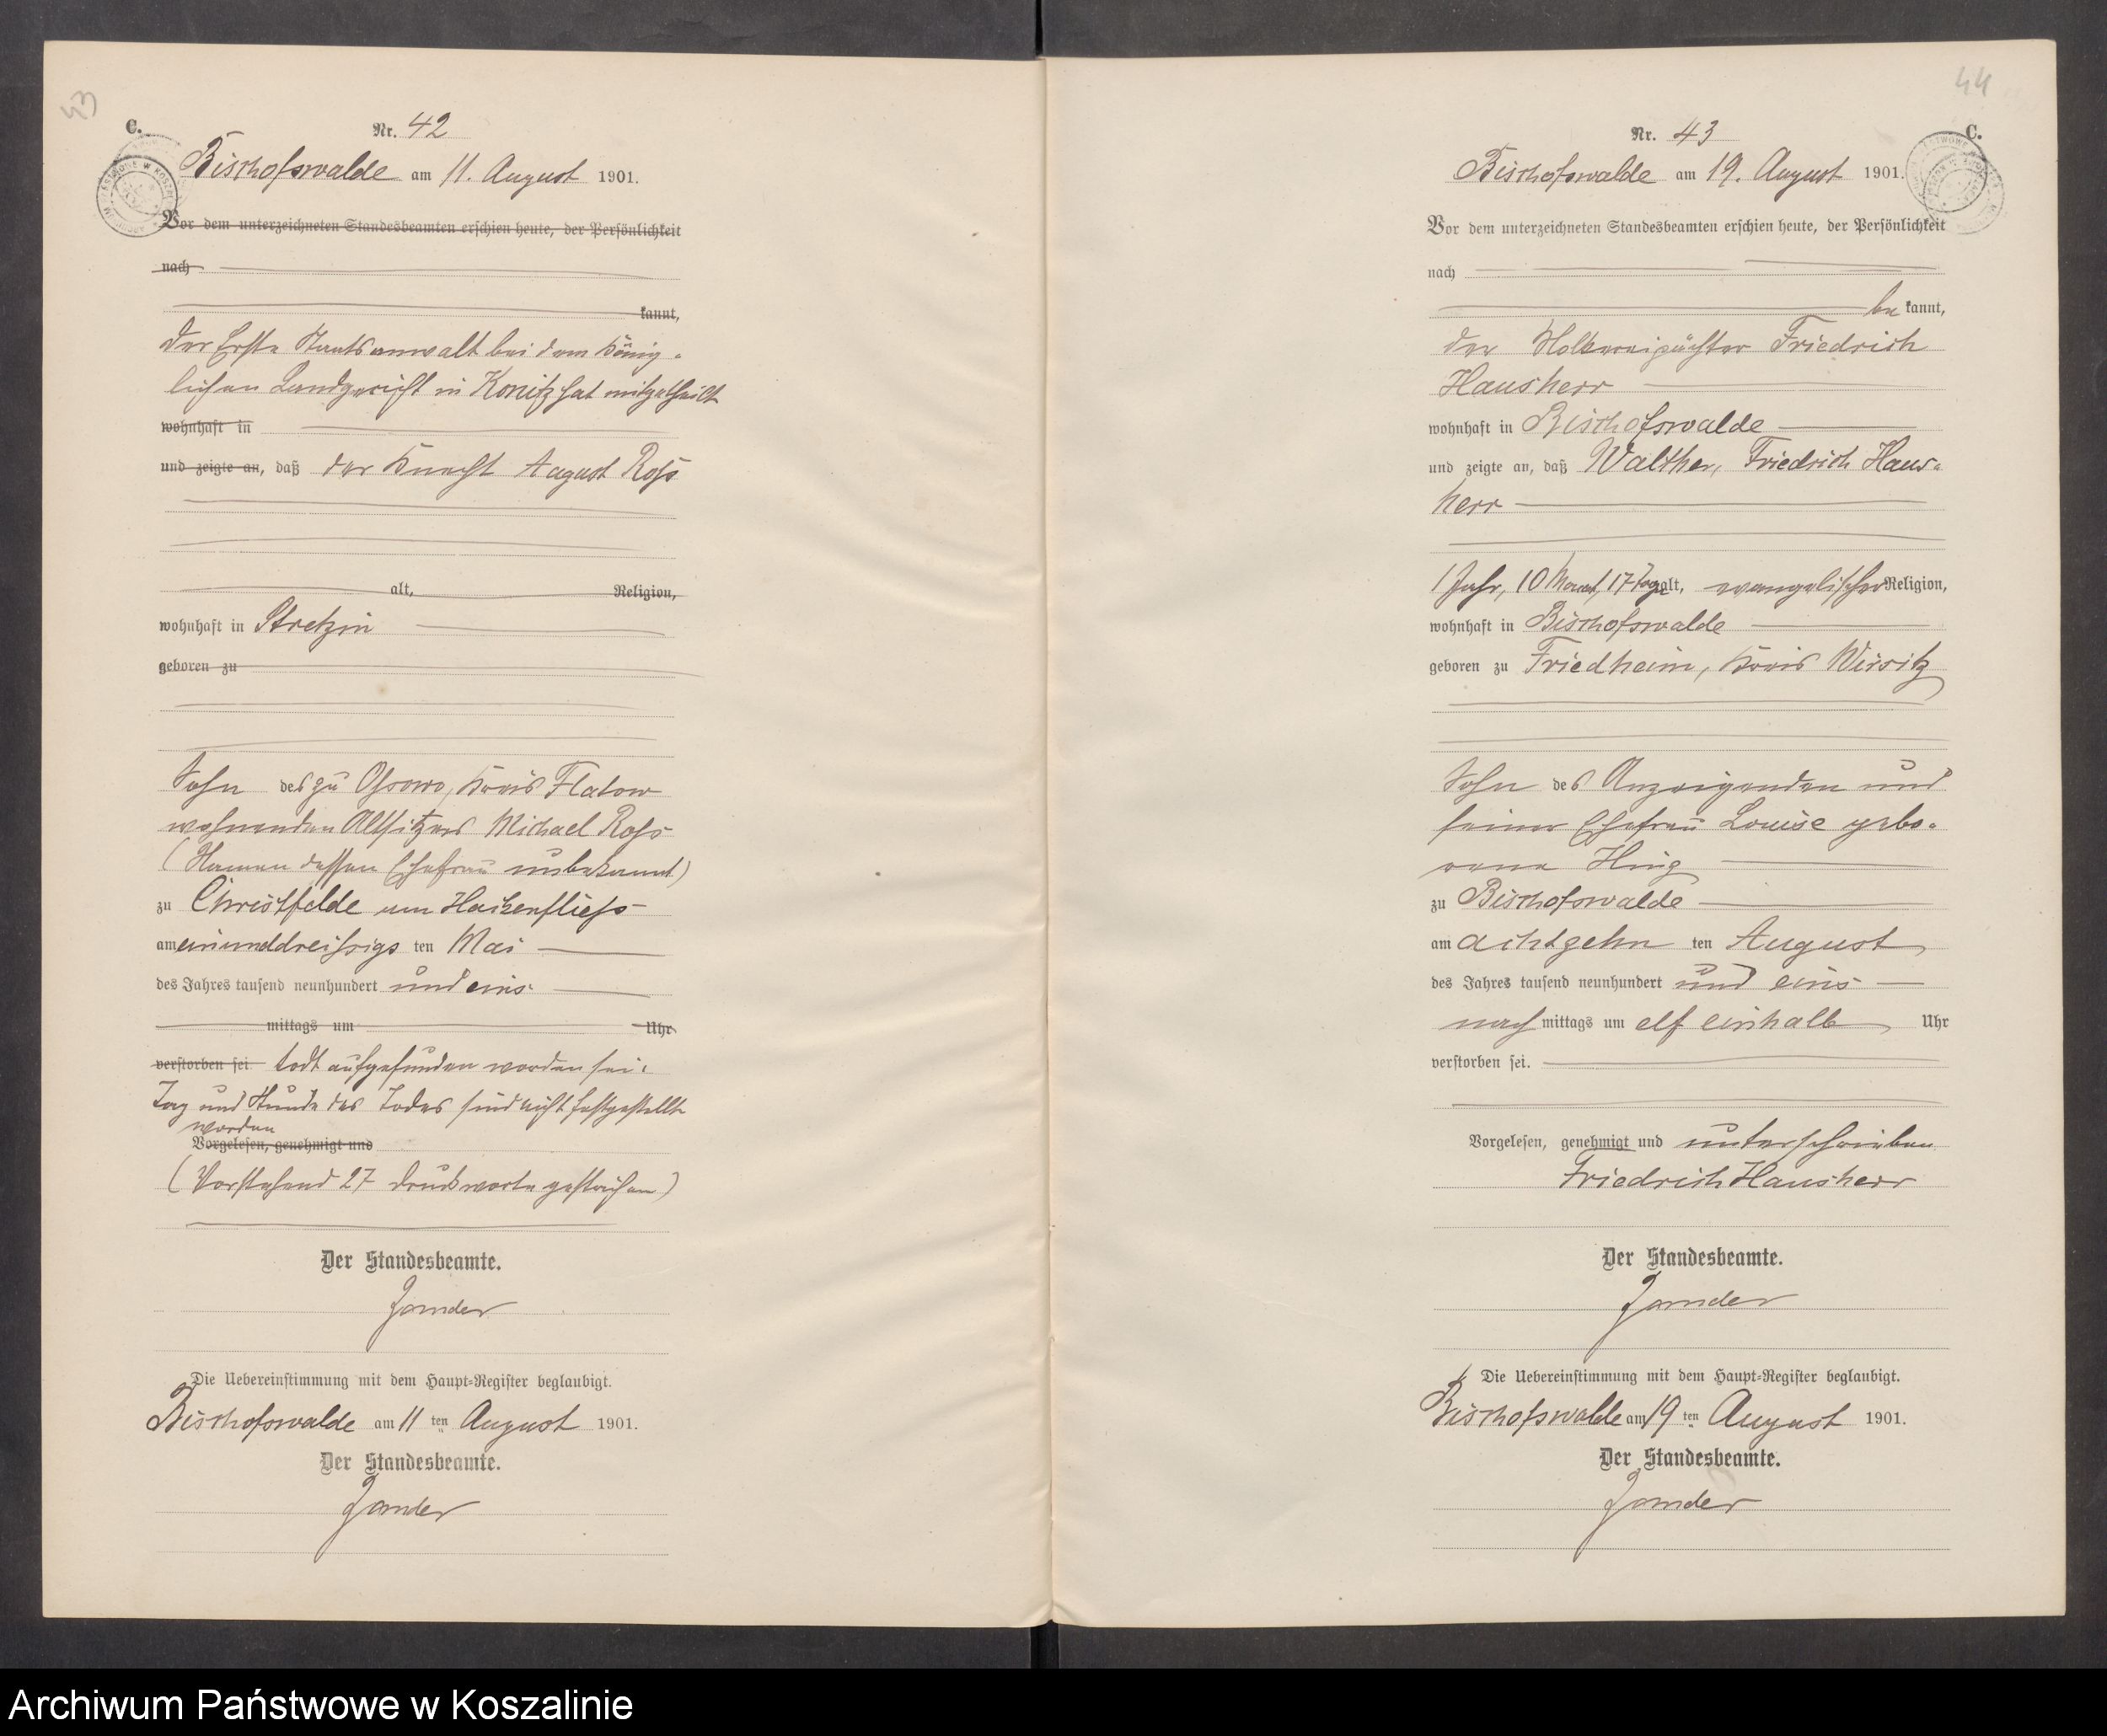 43
C.
Nr. 42
Bischofswalde am 11. August 1901.
Vor dem unterzeichneten Standesbeamten erschien heute, der Persönlichkeit
nach
kannt,
der Erste Staatsanwalt bei dem König-
lichen Landgericht in Konitz hat mitgetheilt
wohnhaft in
und zeigte an, daß der Knecht August Roß
alt, Religion,
wohnhaft in Stretzin
geboren zu
Sohn des zu Ossowo, Kreis Flatow
wohnenden Altsitzers Michael Roß
(Namen dessen Ehefrau unbekannt)
zu Christfelde am Hakenfließ
am einunddreißigs ten Mai
des Jahres tausend neunhundert und eins
mittags um Uhr
verstorben sei todt aufgefunden worden sei.
Tag und Stunde des Todes sind nicht festgestellt
worden
Vorgelesen, genehmigt und
(Vorstehend 27 Druckworte gestrichen)
Der Standesbeamte.
Zander
Die Uebereinstimmung mit dem Haupt-Register beglaubigt.
Bischofswalde am 11 ten August 1901.
Der Standesbeamte.
Zander
44
C.
Nr. 43
Bischofswalde am 19. August 1901.
Vor dem unterzeichneten Standesbeamten erschien heute, der Persönlichkeit
nach
be kannt,
der Molkereipächter Friedrich
Hausherr
wohnhaft in Bischofswalde
und zeigte an, daß Walther, Friedrich Haus-
herr
1 Jahr, 10 Monat, 17 Tage alt, evangelischer Religion,
wohnhaft in Bischofswalde
geboren zu Friedheim, Kreis Wirsitz
Sohn des Anzeigenden und
seiner Ehefrau Louise gebo-
rene
zu Bischofswalde
am achtzehn ten August
des Jahres tausend neunhundert und eins
nach mittags um elf einhalb Uhr
verstorben sei.
Vorgelesen, genehmigt und unterschrieben
Friedrich Hausherr
Der Standesbeamte.
Zander
Die Uebereinstimmung mit dem Haupt-Register beglaubigt.
Bischofswalde am 19 ten August 1901.
Der Standesbeamte.
Zander
Archiwum Państwowe w Koszalinie